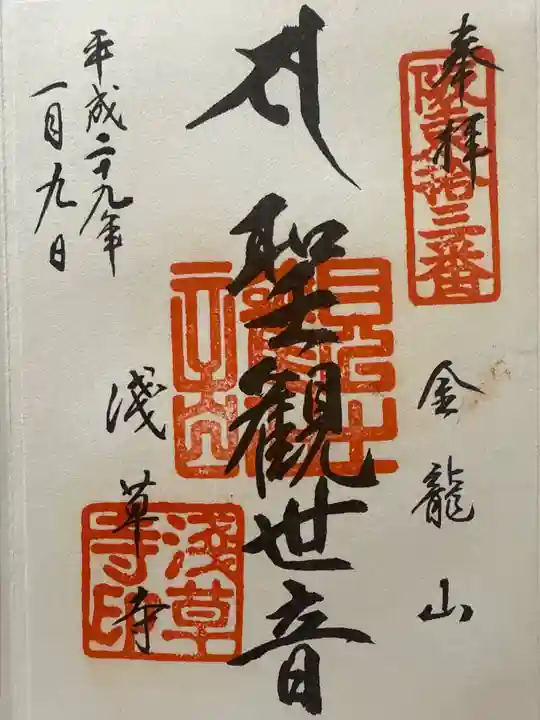 奉拝
坂東拾三番
金龍山
聖観世音
淺草寺
淺草寺印
平成二十九年
一月九日